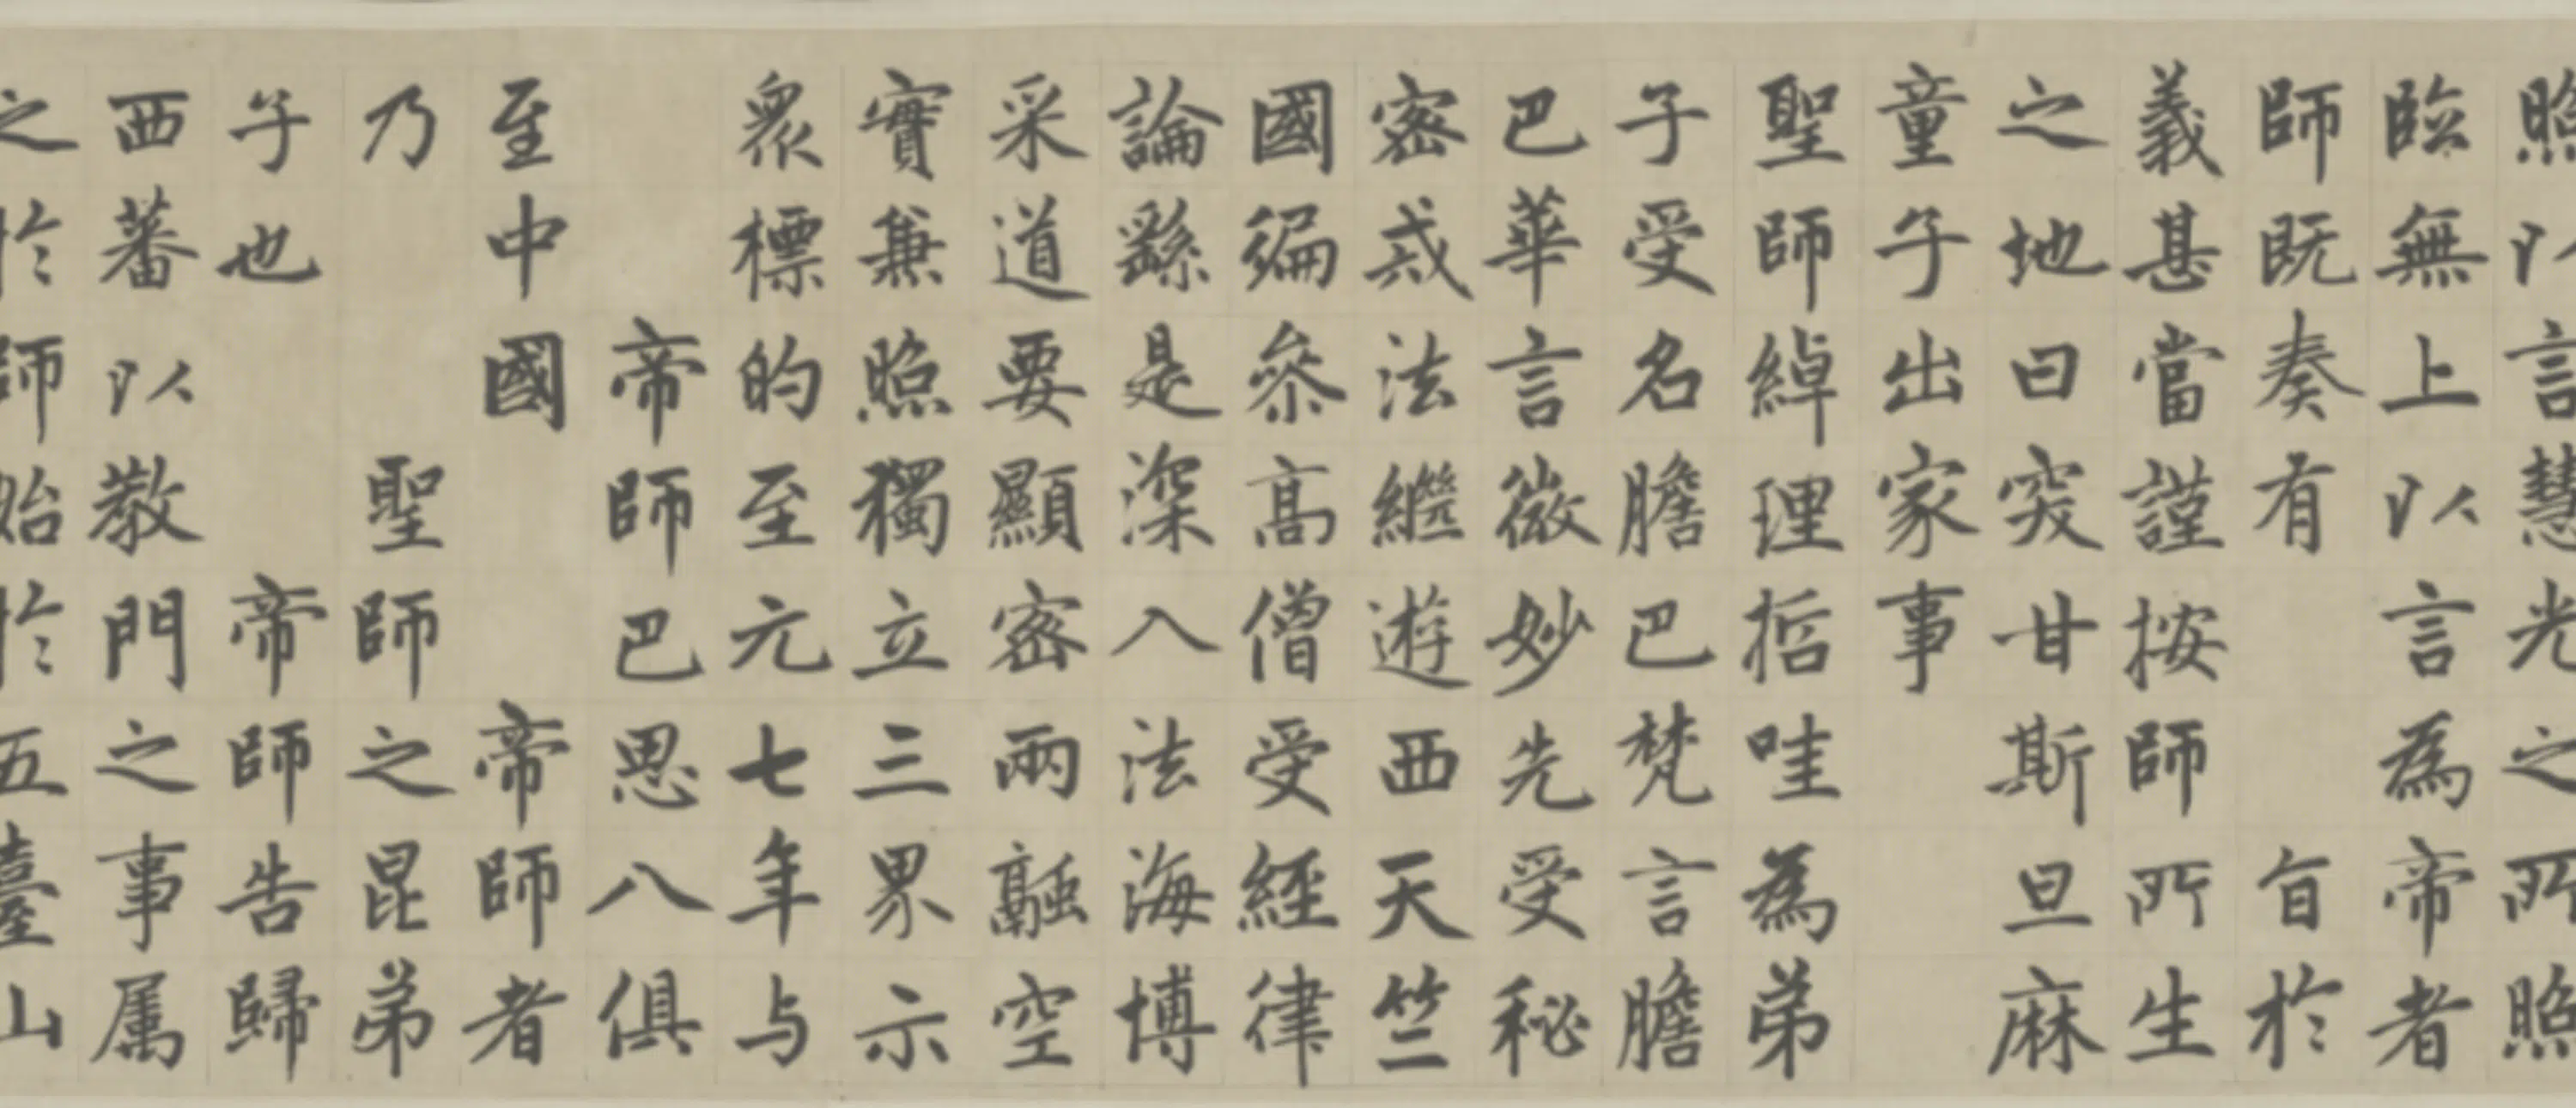 照以言慧光之所照
臨無上以言為帝者
師既奏有旨於
義甚當謹按師所生
之地曰突甘斯旦麻
童子出家事
聖師綽理哲哇為弟
子受名膽巴梵言膽
巴華言微妙先受秘
密戒法繼遊西天竺
國徧參高僧受經律
論繇是深入法海博
采道要顯密兩融空
實兼照獨立三界示
衆標的至元七年与
帝師巴思八俱
至中國帝師者
乃聖師之昆弟
子也帝師告歸
西蕃以教門之事属
之於師始於五臺山